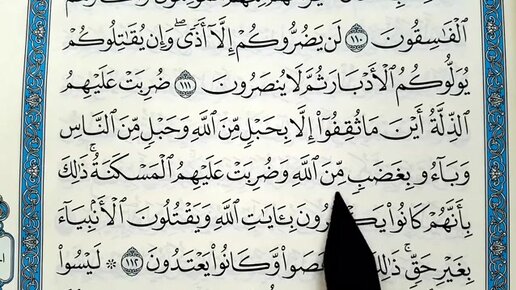 ٱلْفَٰسِقُونَ ١١٠ لَن يَضُرُّوكُمْ إِلَّآ أَذًى ۖ وَإِن يُقَٰتِلُوكُمْ
يُوَلُّوكُمُ ٱلْأَدْبَارَ ثُمَّ لَا يُنصَرُونَ ١١١ ضُرِبَتْ عَلَيْهِمُ
ٱلذِّلَّةُ أَيْنَ مَا ثُقِفُوٓا۟ إِلَّا بِحَبْلٍ مِّنَ ٱللَّهِ وَحَبْلٍ مِّنَ ٱلنَّاسِ
وَبَآءُو بِغَضَبٍ مِّنَ ٱللَّهِ وَضُرِبَتْ عَلَيْهِمُ ٱلْمَسْكَنَةُ ۚ ذَٰلِكَ
بِأَنَّهُمْ كَانُوا۟ يَكْفُرُونَ بِـَٔايَٰتِ ٱللَّهِ وَيَقْتُلُونَ ٱلْأَنۢبِيَآءَ
بِغَيْرِ حَقٍّ ۚ ذَٰلِكَ عَصَوا۟ وَّكَانُوا۟ يَعْتَدُونَ ١١٢ ۞ لَيْسُوا۟